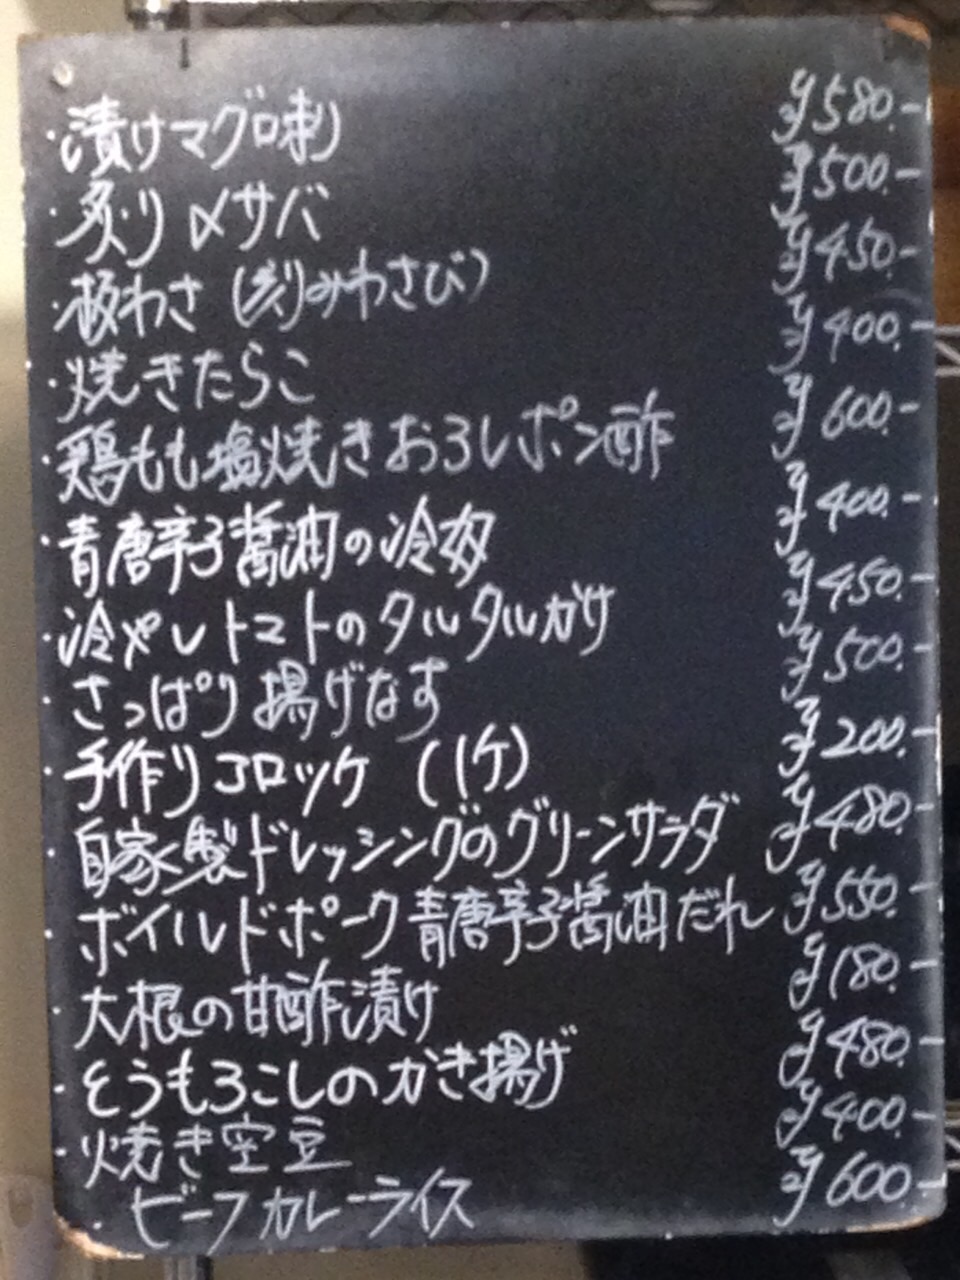 ・漬けマグロ刺 ¥580.-
・炙り〆サバ ¥500.-
・板わさ(刻みわさび) ¥450.-
・焼きたらこ ¥400.-
・鶏もも塩焼きおろしポン酢 ¥600.-
・青唐辛子醤油の冷奴 ¥400.-
・冷やしトマトのタルタルがけ ¥450.-
・さっぱり揚げなす ¥500.-
・手作りコロッケ(1ケ) ¥200.-
・自家製ドレッシングのグリーンサラダ ¥480.-
・ボイルドポーク青唐辛子醤油だれ ¥550.-
・大根の甘酢漬け ¥180.-
・とうもろこしのかき揚げ ¥480.-
・焼き空豆 ¥400.-
・ビーフカレーライス ¥600.-